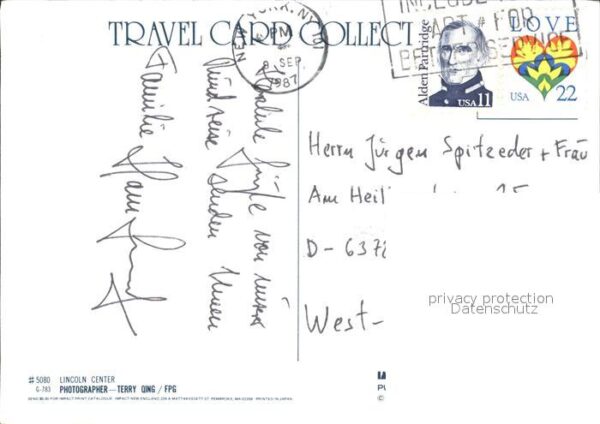 TRAVEL CARD COLLECT
NEW YORK, NY
PM
8 SEP
1987
INCLUDE
APT # FOR
BETTER SERVICE
Alden Partridge
USA 11
LOVE
USA 22
Herzliche Grüße von unserer
Rundreise senden Ihnen
Familie
Herrn Jürgen Spitzeder + Frau
Am Heil
D - 6378
West-
privacy protection
Datenschutz
# 5080 LINCOLN CENTER
G-783 PHOTOGRAPHER—TERRY QING / FPG